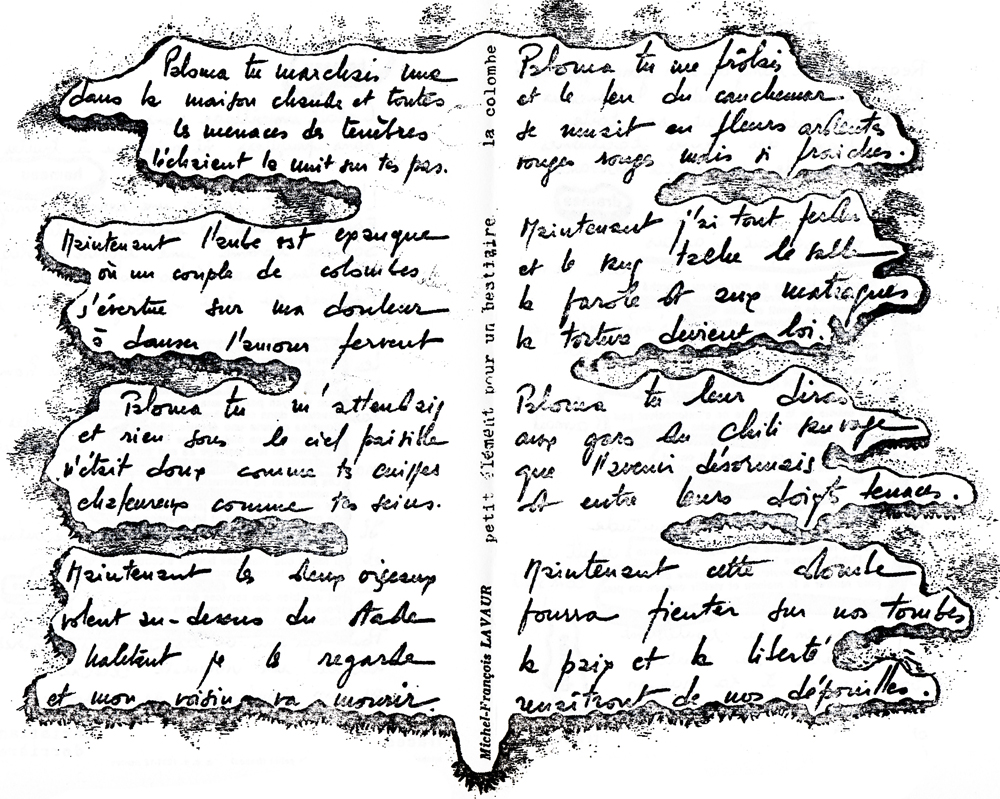 Paloma tu marchais nue
dans la maison chaude et toutes
les menaces des ténèbres
léchaient la nuit sur tes pas.
Maintenant l'aube est exangue
où un couple de colombes
s'évertue sur ma douleur
à danser l'amour fervent
Paloma tu m'attendais
et rien sous le ciel paisible
n'était doux comme tes cuisses
chaleureux comme tes seins.
Maintenant les deux oiseaux
volent au-dessus du stade
haletant je les regarde
et mon voisin va mourir.
petit élément pour un bestiaire la colombe
Michel-François LAVAUR
Paloma tu me frôlais
et le feu du cauchemar
se muait en fleurs ardentes
rouges rouges mais si fraîches.
Maintenant j'ai tout perdu
et le sang tache le sable
la parole est aux matraques
la torture devient loi.
Paloma tu leur diras
aux gars du Chili sauvage
que l'avenir désormais
est entre leurs doigts tenaces.
Maintenant cette colombe
pourra fienter sur nos tombes
la paix et la liberté
renaîtront de nos dépouilles.